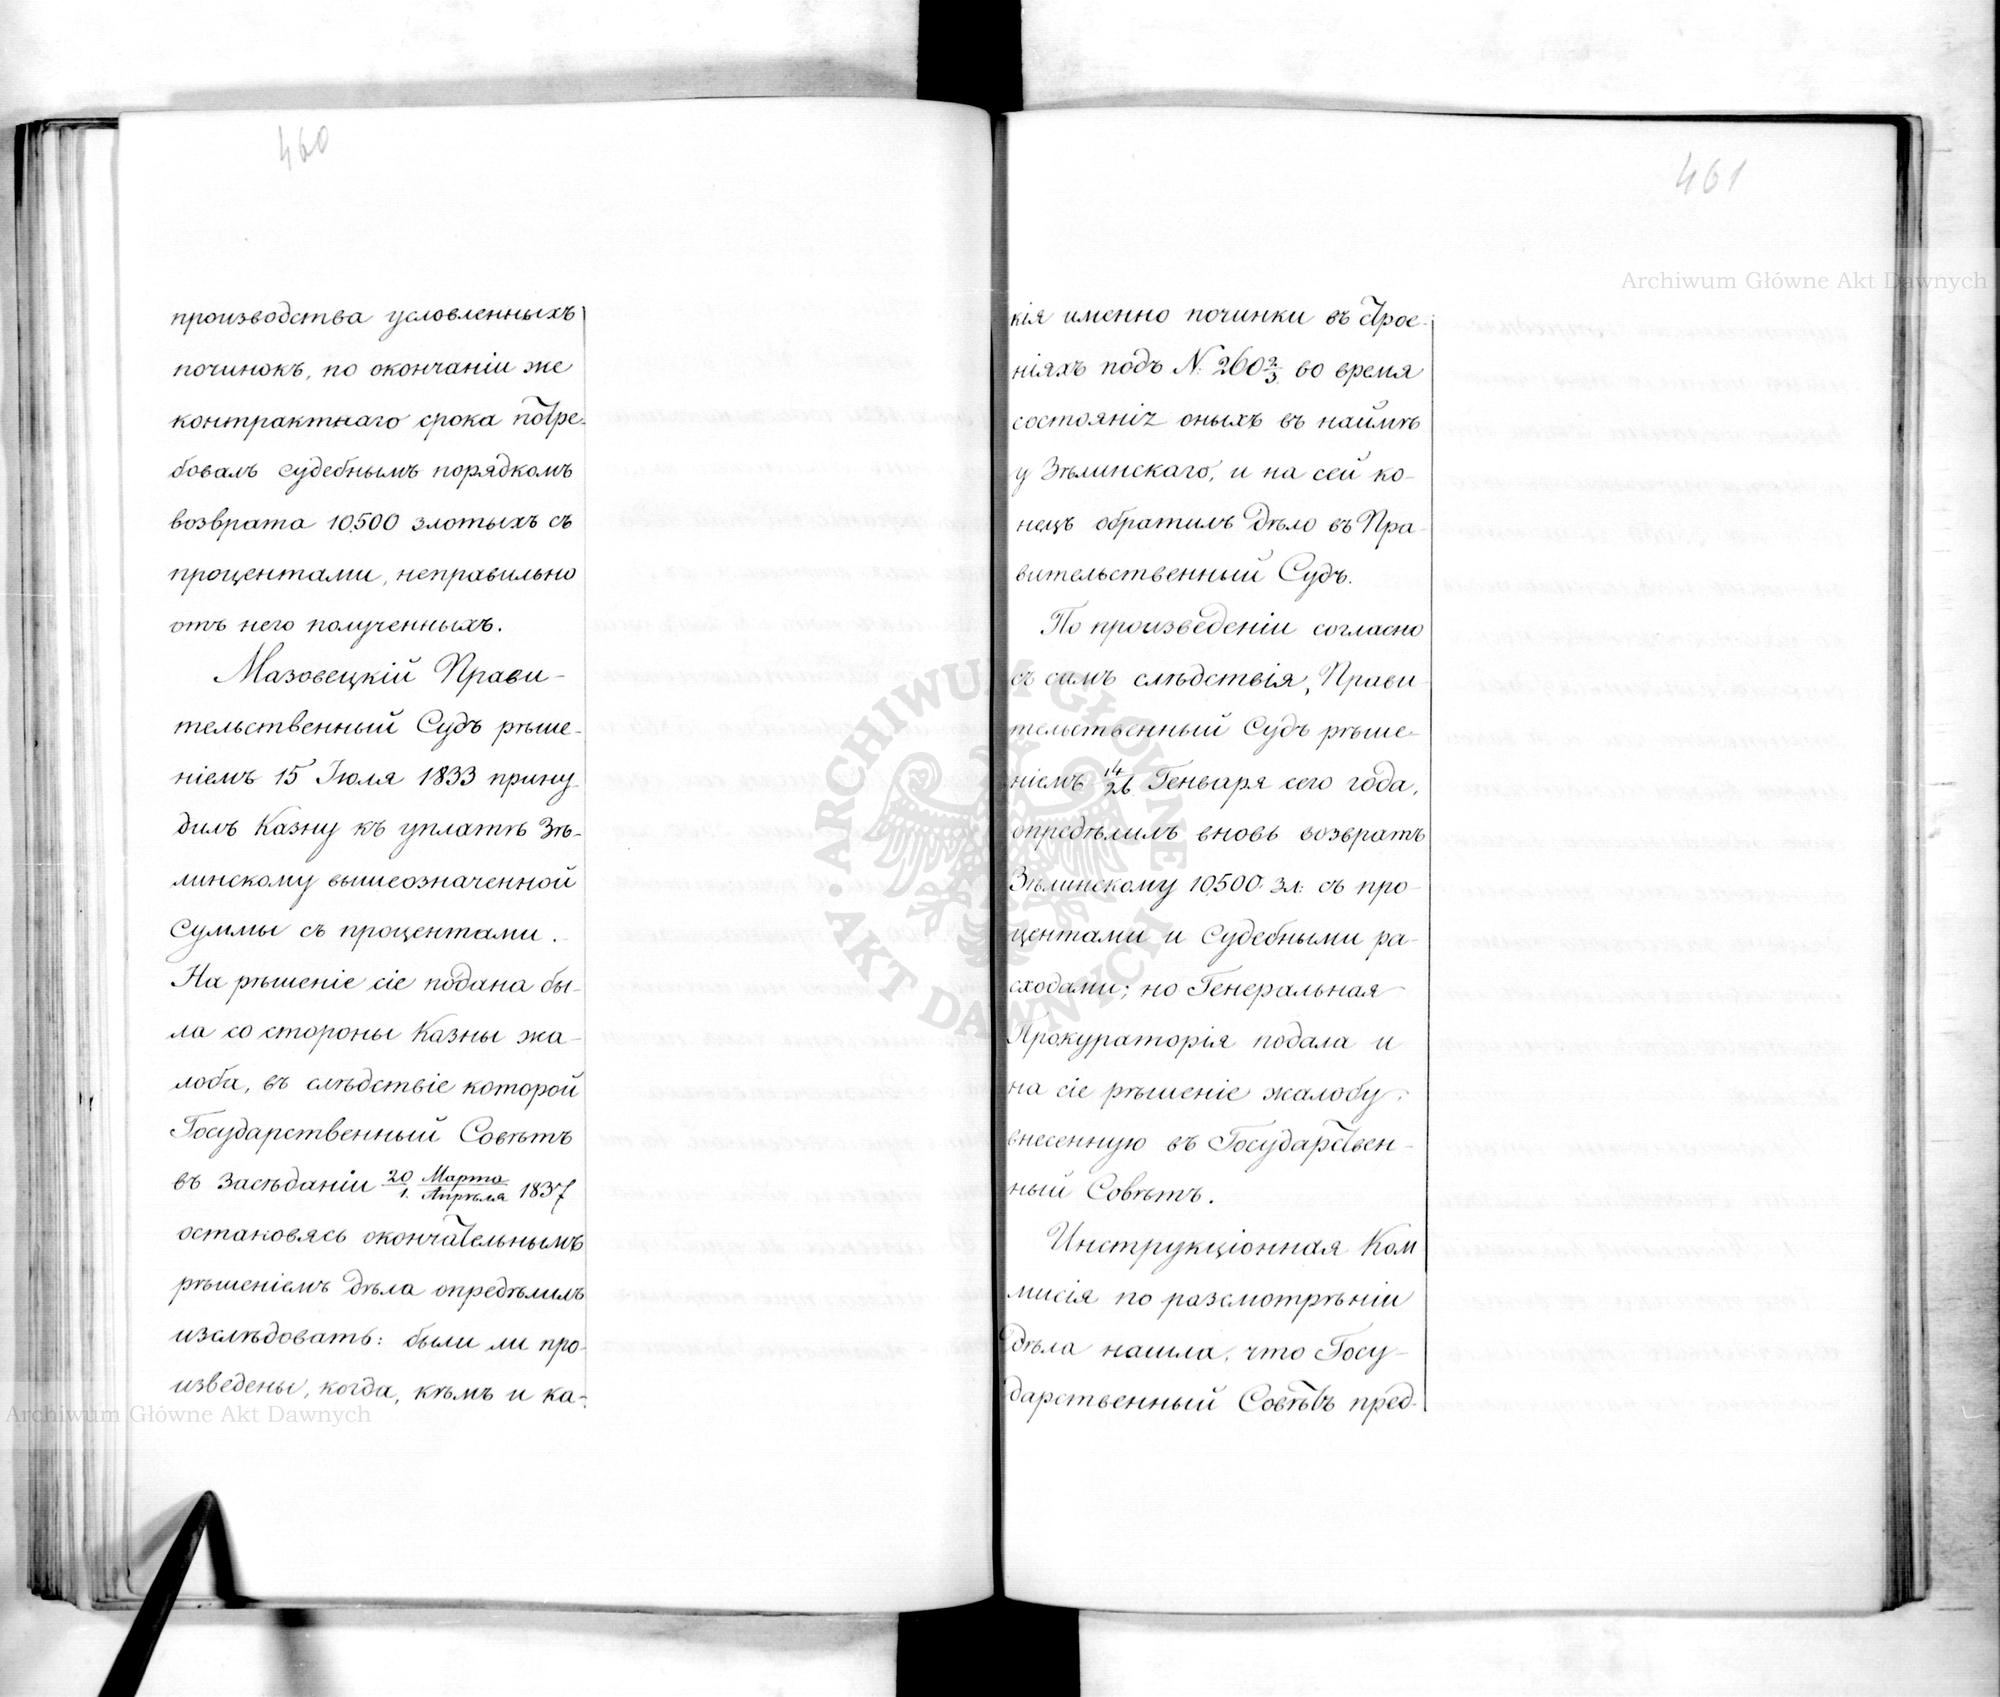 460
производства условленныхъ
починокъ, по окончаніи же
контрактнаго срока потре-
бовалъ судебнымъ порядкомъ
возврата 10,500 злотыхъ съ
процентами, неправильно
отъ него полученныхъ.
Мазовецкій Прави-
тельственный Судъ рѣше-
ніемъ 15 Іюля 1833 прину-
дилъ Казну къ уплатѣ Зѣ-
линскому вышеозначенной
суммы съ процентами.
На рѣшеніе сіе подана бы-
ла со стороны Казны жа-
лоба, въ слѣдствіе которой
Государственный Совѣтъ
въ Засѣданіи 20 Марта / 1. Апрѣля 1837
остановясь окончательнымъ
рѣшеніемъ дѣла опредѣлилъ
изслѣдовать: были ли про-
изведены, когда, кѣмъ и ка-
461
кія именно починки въ строе-
ніяхъ подъ N. 260 2/3 во время
состоянія оныхъ въ наймѣ
у Зѣлинскаго, и на сей ко-
нецъ обратилъ дѣло въ Пра-
вительственный Судъ.
По произведеніи согласно
съ симъ слѣдствія, Прави-
тельственный Судъ рѣше-
ніемъ 14/26 Генваря сего года,
опредѣлилъ вновь возвратъ
Зѣлинскому 10,500 зл: съ про-
центами и судебными ра-
сходами; но Генеральная
Прокураторія подала и
на сіе рѣшеніе жалобу,
внесенную въ Государствен-
ный Совѣтъ.
Инструкціонная Ком
мисія по разсмотрѣніи
дѣла нашла, что Госу-
дарственный Совѣтъ пред-
Archiwum Główne Akt Dawnych
Archiwum Główne Akt Dawnych
ARCHIWUM GŁÓWNE AKT DAWNYCH